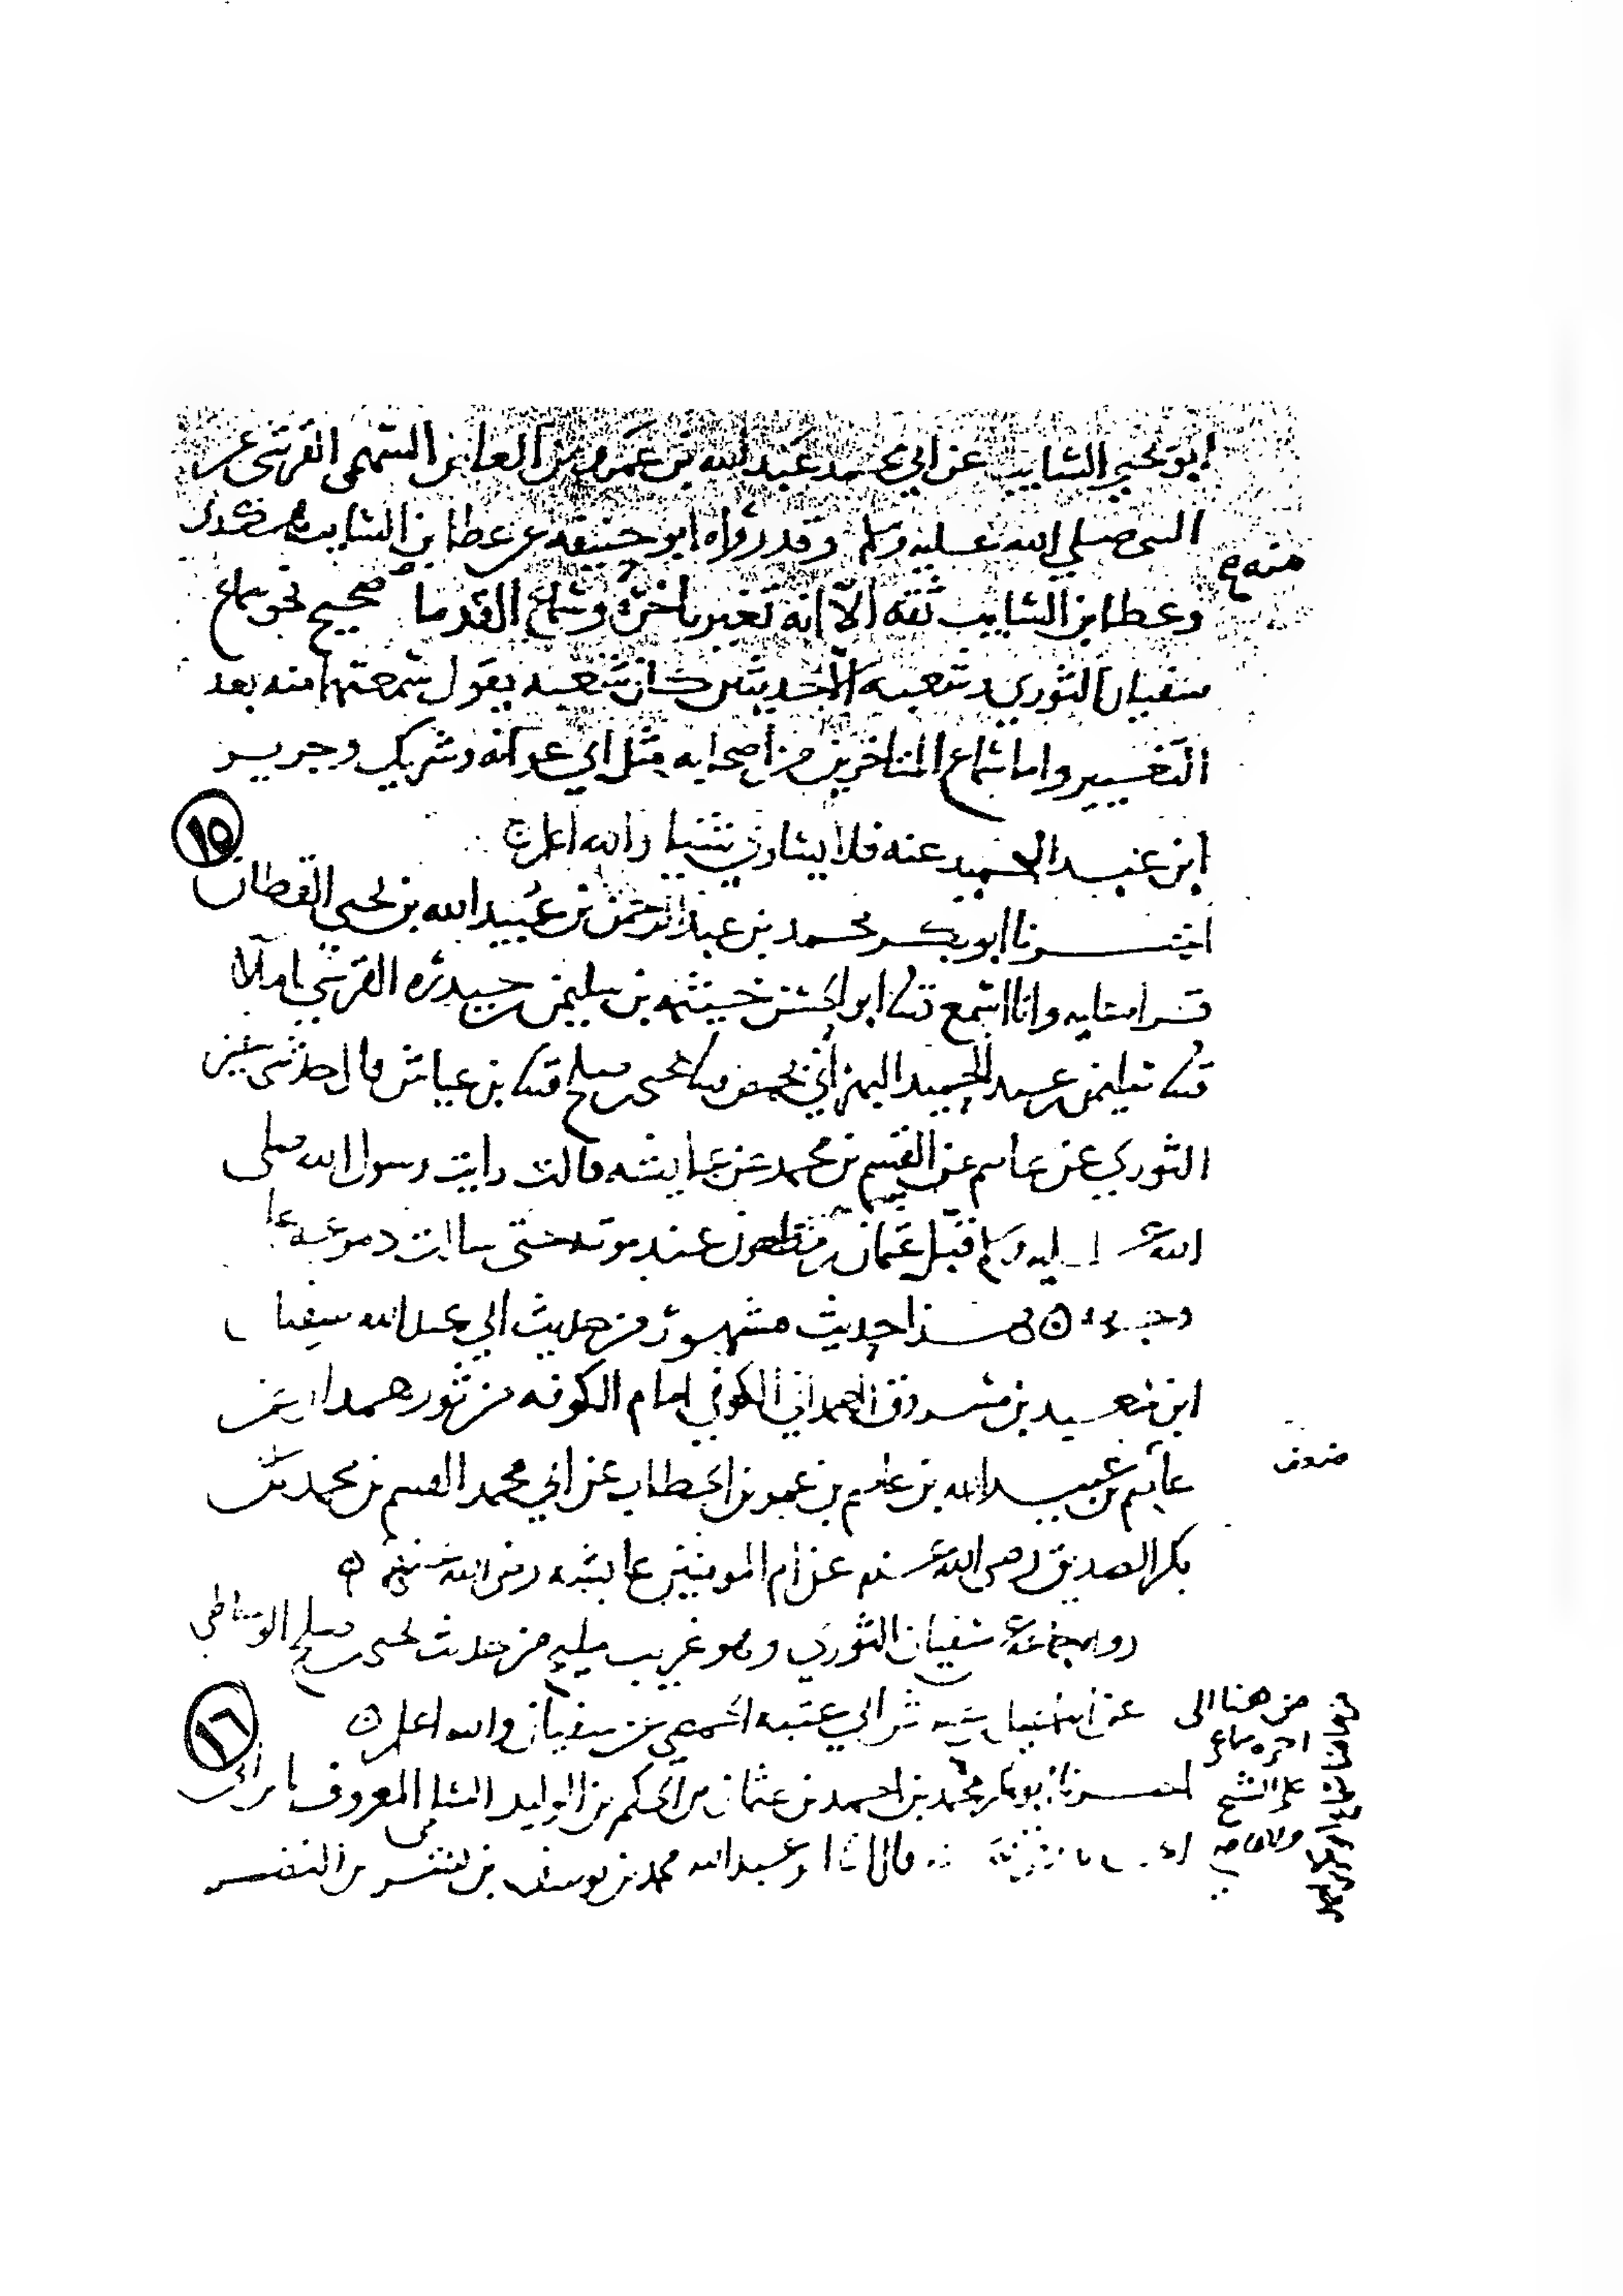 ابو يحيى السايب عن ابي محمد عبد الله بن عمرو بن العاص السهمي القرشي عن
النبي صلى الله عليه وسلم وقد رواه ابو حنيفه عن عطا بن السايب
منه ع
وعطا بن السايب ثقه الا انه تغير باخره وسماع القدما صحيح نحو سماع
سفيان الثوري وشعبه الا حديثين كان شعبه يقول سمعتهما منه بعد
التغيير واما سماع المتاخرين من اصحابه مثل ابي عوانه وشريك وجرير
ابن عبد الحميد عنه فلا يساوي شيا والله اعلم
١٥
اخبرنا ابو بكر محمد بن عبد الرحمن بن عبيد الله بن يحيى القطان
قراه عليه وانا اسمع ثنا ابو الحسن خيثمه بن سليمن بن حيدره القرشي املا
ثنا سليمن بن عبد الحميد البهراني بحمص ثنا يحيى بن صلح ثنا بن عياش قال حدثني سفين
الثوري عن عاصم عن القسم بن محمد عن عايشه قالت رايت رسول الله صلى
الله عليه وسلم قبل عثمان بن مظعون عند موته حتى سالت دموعه على
وجهه هذا حديث مشهور من حديث ابي عبد الله سفيان
ابن سعيد بن مسروق الهمداني الكوفي امام الكوفه من ثور همدان عن
عاصم بن عبيد الله بن عاصم بن عمر بن الخطاب عن ابي محمد القسم بن محمد بن
ضعف
بكر الصديق رضي الله عنه عن ام المومنين عايشه رضي الله عنهم
رواه جماعة سفيان الثوري وهو غريب من حديث يحيى بن صلح الوحاظي
عن اسمعيل بن عياش ابي عتبه الحمصي عن سفيان والله اعلم
١٦
من هنا الى
اخره سماع
على الشيخ
اخبرنا ابو بكر محمد بن احمد بن عثمان بن الحكم بن الوليد السلمي المعروف بابن ابي
قالا ثنا ابو عبد الله محمد بن يوسف بن بشر بن النضر